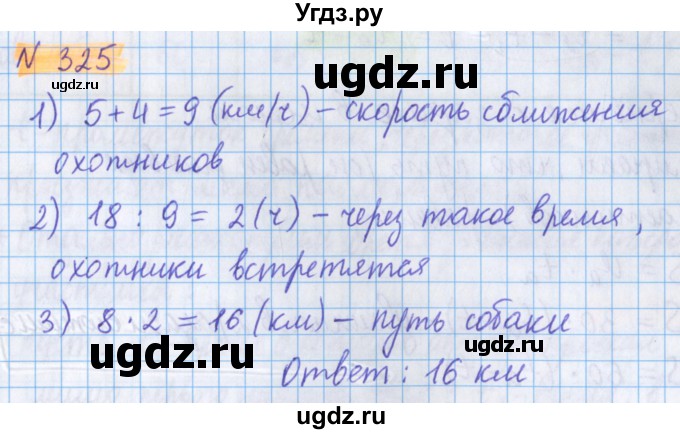 Угдз.ру
N 325
ugdz.ru
1) 5+4=9 (км/ч) – скорость сближения
охотников
ugdz.ru
2) 18 : 9 = 2 (ч) – через такое время,
охотники встретятся
3) 8 · 2 = 16 (км) – путь собаки
ugdz.ru
ugdz.ru
Ответ: 16 км
ugdz.ru